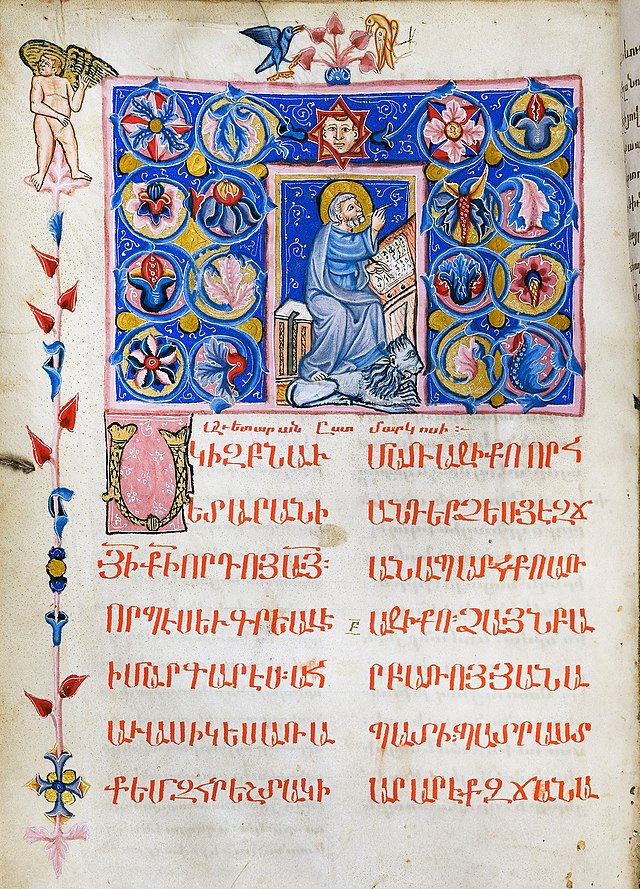 Աւետարան Ըստ Մարկոսի:
ՍԿԻԶԲՆԱՒ
ԵՏԱՐԱՆԻ
ՅԻ ՔԻ ՈՐԴՈՅ ԱՅ:
ՈՐՊԷՍԵՒԳՐԵԱԼԷ
ԻՄԱՐԳԱՐԷՍ:ԱՀ
ԱՒԱՍԻԿԵՍԱՌԱ
ՔԵՄԶՀՐԵՇՏԱԿԻ
ՄԱՌԱՋԻՔՈՈՐՀ
ԱՆԴԵՐՁԵՍՑԷԶՃ
ԱՆԱՊԱՐՀՔՈԱՌ
Բ ԱՋԻՔՈ:ՁԱՅՆԲԱ
ՐԲԱՌՈՅՅԱՆԱ
ՊԱՏԻ:ՊԱՏՐԱՍՏ
ԱՐԱՐԷՔԶՃԱՆԱ